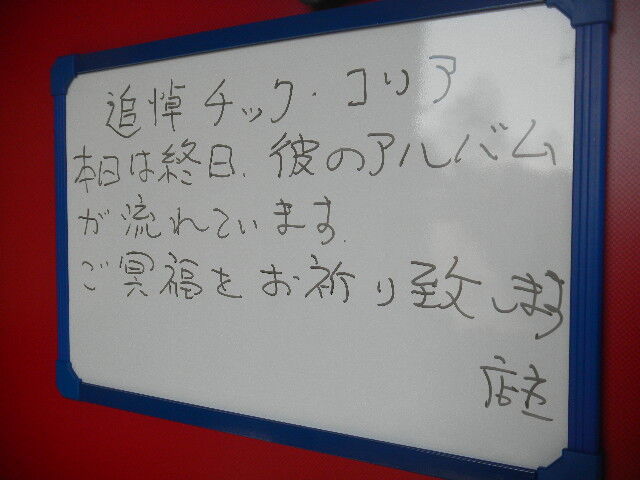 追悼 チック・コリア
本日は終日、彼のアルバム
が流れています。
ご冥福をお祈り致します
店主